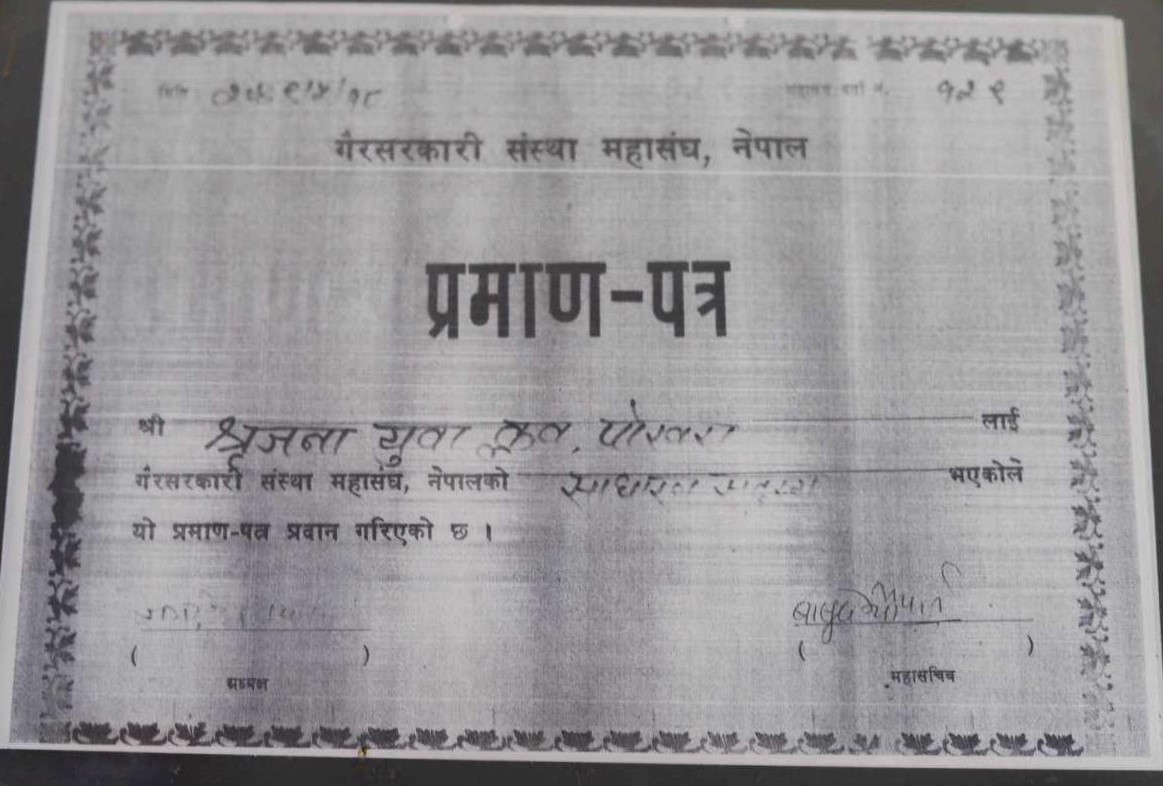 मिति १२९
गैरसरकारी संस्था महासंघ, नेपाल
प्रमाण-पत्र
श्री श्रृजना युवा क्लव, पोखरा लाई
गैरसरकारी संस्था महासंघ, नेपालको साधारण सदस्य भएकोले
यो प्रमाण-पत्र प्रदान गरिएको छ ।
( ) ( )
अध्यक्ष महासचिव